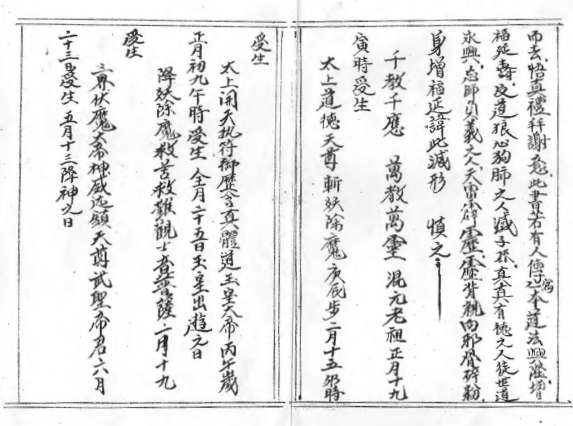 而去悟真禮拜謝恩此書若有人傳之寫奉道法興隆增
福延壽反道狼心狗肺之人滅子孫真真有德之人從世道
永興忘師負義之人天雷碎靈靈背親向邪骨碎勒
身增福延諱此滅形 慎之
千教千應 萬教萬靈 混元老祖正月十九
寅時受生
太上道德天尊斬妖除魔庚辰步二月十五卯時
受生
太上開天執符御歷含真體道玉皇大帝丙午歲
正月初九午時受生 全月二十五日玉皇出遊元日
降妖除魔救苦救難觀士音菩薩二月十九
受生
三界伏魔大帝神威远鎮天尊武聖帝君六月
二十三日受生 五月十三降神之日